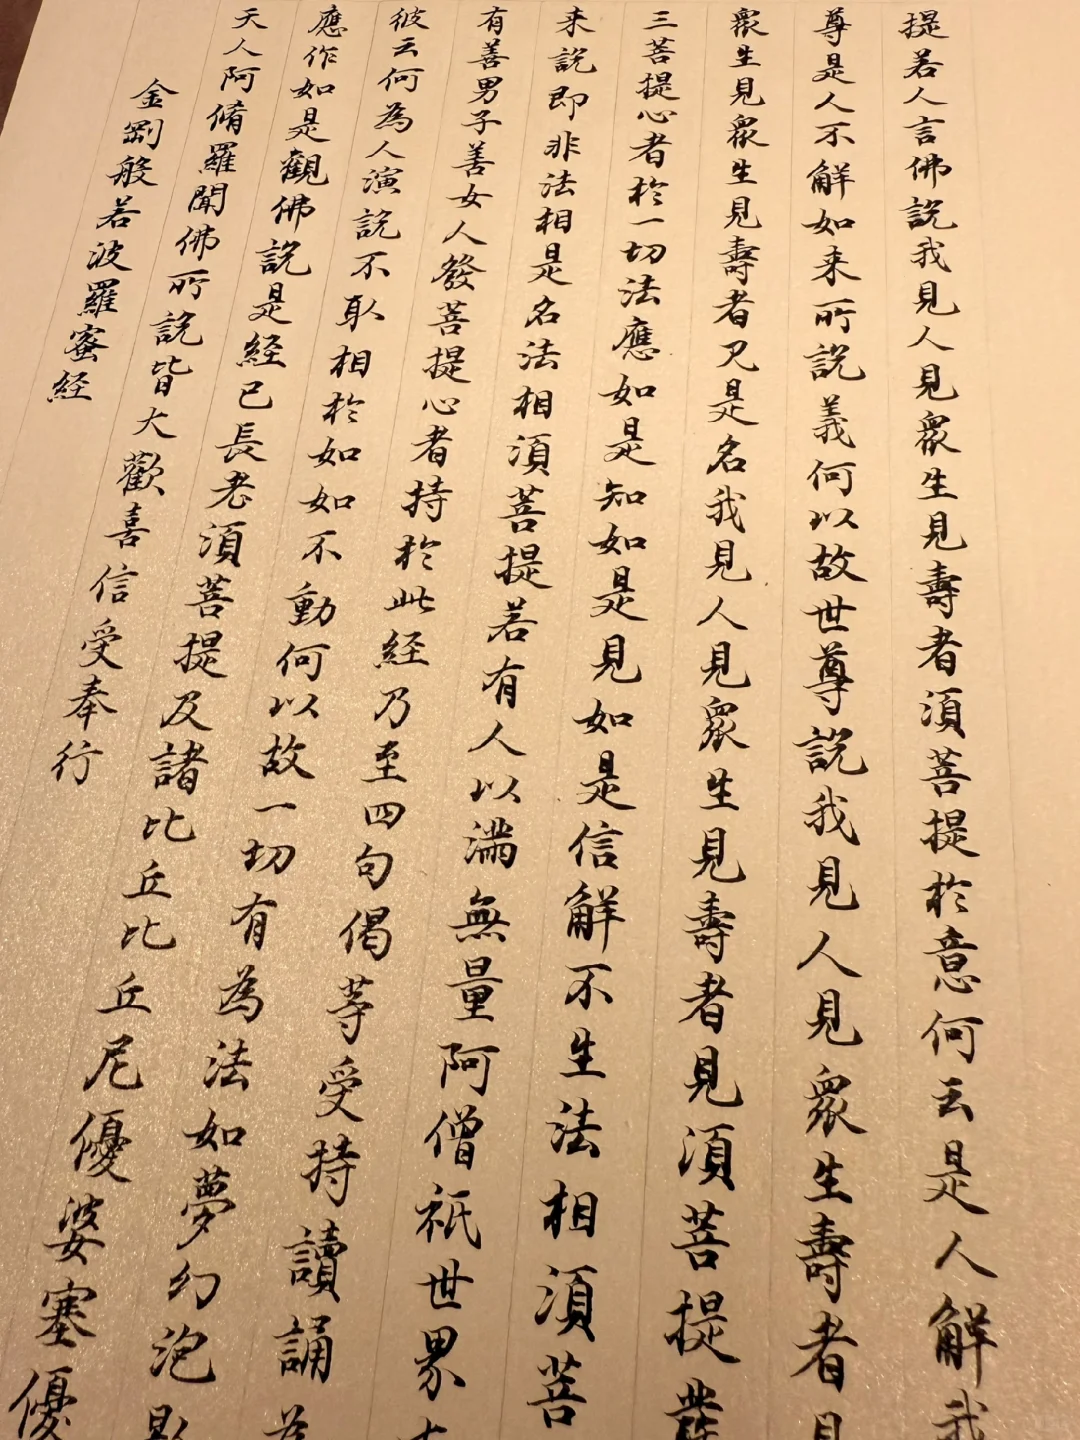 提若人言佛說我見人見眾生見壽者須菩提於意何云是人解我
尊是人不解如来所說義何以故世尊說我見人見眾生壽者見
眾生見眾生見壽者見是名我見人見眾生見壽者見須菩提發
三菩提心者於一切法應如是知如是見如是信解不生法相須菩
来說即非法相是名法相須菩提若有人以滿無量阿僧祇世界
有善男子善女人發菩提心者持於此経乃至四句偈等受持讀誦為
彼云何為人演說不取相於如如不動何以故一切有為法如夢幻泡影
應作如是觀佛說是経已長老須菩提及諸比丘比丘尼優婆塞優
天人阿脩羅聞佛所說皆大歡喜信受奉行
金剛般若波羅蜜経